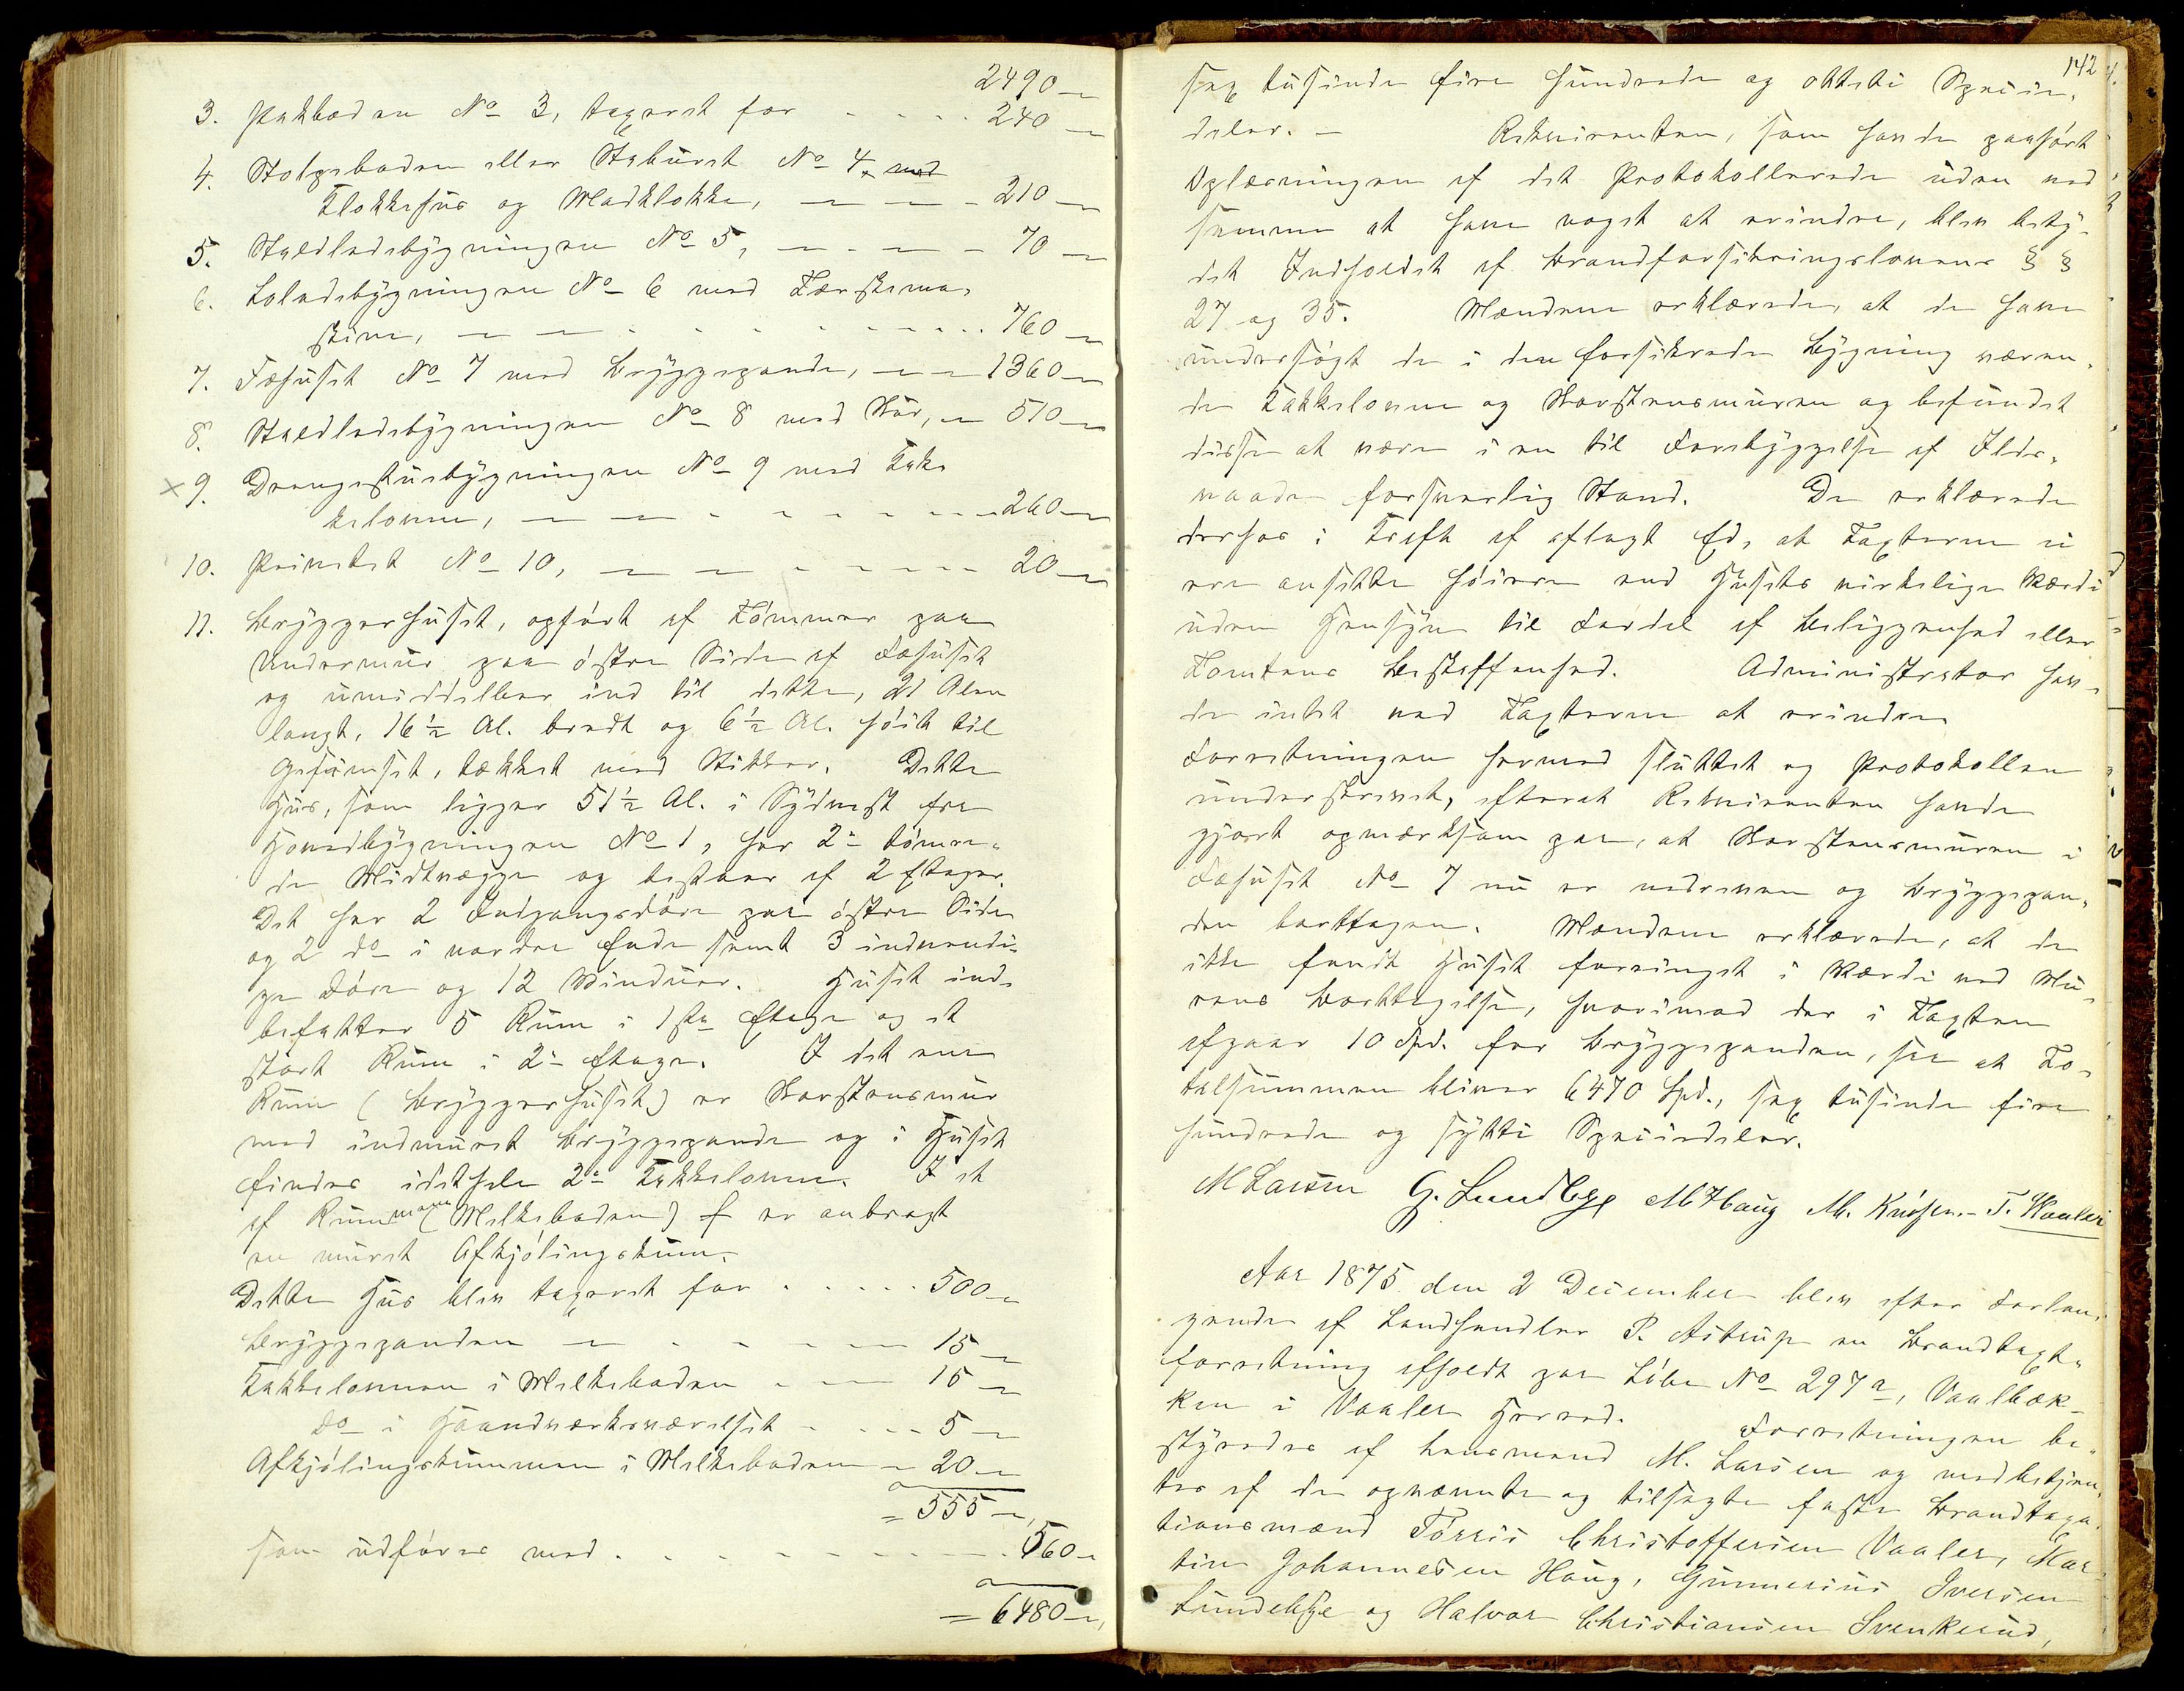 2490 —
3. Pakboden No 3, taxeret for - - - - 240 —
4. Stolpeboden eller Stabur​et No 4, med
Klokkehus og Madklokke, — — - 210 —
5. Staldladebygningen No 5, — - — - 70 —
6. Loladebygningen No 6 med Tærskema-
skine, — — - - - - - - - - 760 —
7. Fæhuset No 7 med Bryggepande, — — 1360 —
8. Staldladebygningen No 8 med Skur, — 510 —
× 9. Drengestuebygningen No 9 med Kak-
kelovne, — — - - - - - - 260 —
10. Privetet No 10, — — - - - - - 20 —
11. Bryggerhuset, opført af Tømmer paa
Undermur paa østre Side af Fæhuset
og umiddelbar ind til dette, 21 Alen
langt, 16 ½ Al. bredt og 6 ½ Al. høit til
Gesimset, tækket med Stikker. Dette
Hus, som ligger 51 ½ Al. i Sydvest fra
Hovedbygningen No 1, har 2de tømre-
de Midtvægge og bestaar af 2 Etager.
Det har 2 Indgangsdøre paa østre Side
og 2 do i nordre Ende samt 3 indvendi-
ge Døre og 12 Vinduer. Huset ind-
befatter 5 Rum i 1ste Etage og et
stort Rum i 2den Etage. I det ene
Rum (Bryggerhuset) er Skorstensmur
med indmuret Bryggepande og i Huset
findes idethele 2de Kakkelovne. I et
af Rummene (Melkeboden) er anbragt
en muret Afkjølingskum.
Dette Hus blev taxeret for - - - - - 500 —
Bryggepanden — - - - — 15 —
Kakkelovnen i Melkeboden - - — 15 —
do i Haandværksværelset - - - - 5 —
Afkjølingskummen i Melkeboden — 20 —
= 555 —,
som udføres med - - - - - - - - 560 —
= 6480 —,
142
sex tusinde fire hundrede og otteti Specie-
daler. — Rekvirenten, som havde paahørt
Oplæsningen af det Protokollerede uden ved
samme at have noget at erindre, blev bety-
det Indholdet af Brandforsikringslovens § §
27 og 35. Mændene erklærede, at de have
undersøgt de i den forsikrede Bygning væren-
de Kakkelovne og Skorstensmuren og befundet
disse at være i en til Forebyggelse af Ilds-
vaade forsvarlig Stand. De erklærede
derhos i Kraft af aflagt Ed, at Taxterne ei
ere ansatte høiere end Husets virkelige Værdi
uden Hensyn til Fordel af Beliggenhed eller
Tomtens Beskaffenhed. Administrator hav-
de intet ved Taxterne at erindre
Forretningen hermed sluttet og Protokollen
underskrevet, efterat Rekvirenten havde
gjort opmærksom paa, at Skorstensmuren i
Fæhuset No 7 nu er nedreven og Bryggepan-
den borttagen. Mændene erklærede, at de
ikke fandt Huset forringet i Værdi ved Mu-
rens Borttagelse, hvorimod der i Taxten
afgaar 10 Spd. for Bryggepanden, saa at To-
talsummen bliver 6470 Spd., sex tusinde fire
hundrede og sytti Speciedaler.
M Larsen G. Lundebye M Haug M. T. Waaler
Aar 1875 den 2 December blev efter Forlan-
gende af Landhandler P. Astrup en Brandtaxt-
forretning afholdt paa Løbe No 297a, Vaalbæk-
ken i Vaaler Herred. Forretningen be-
styredes af Lensmand M. Larsen og medbetjen-
tes af de opnævnte og tilsagte faste Brandtaxa-
tionsmænd Torris Christoffersen Vaaler, Mar-
tin Johannesen Haug, Gunnerius Iversen
Lundebye og Halvor Christiansen Svenkerud,